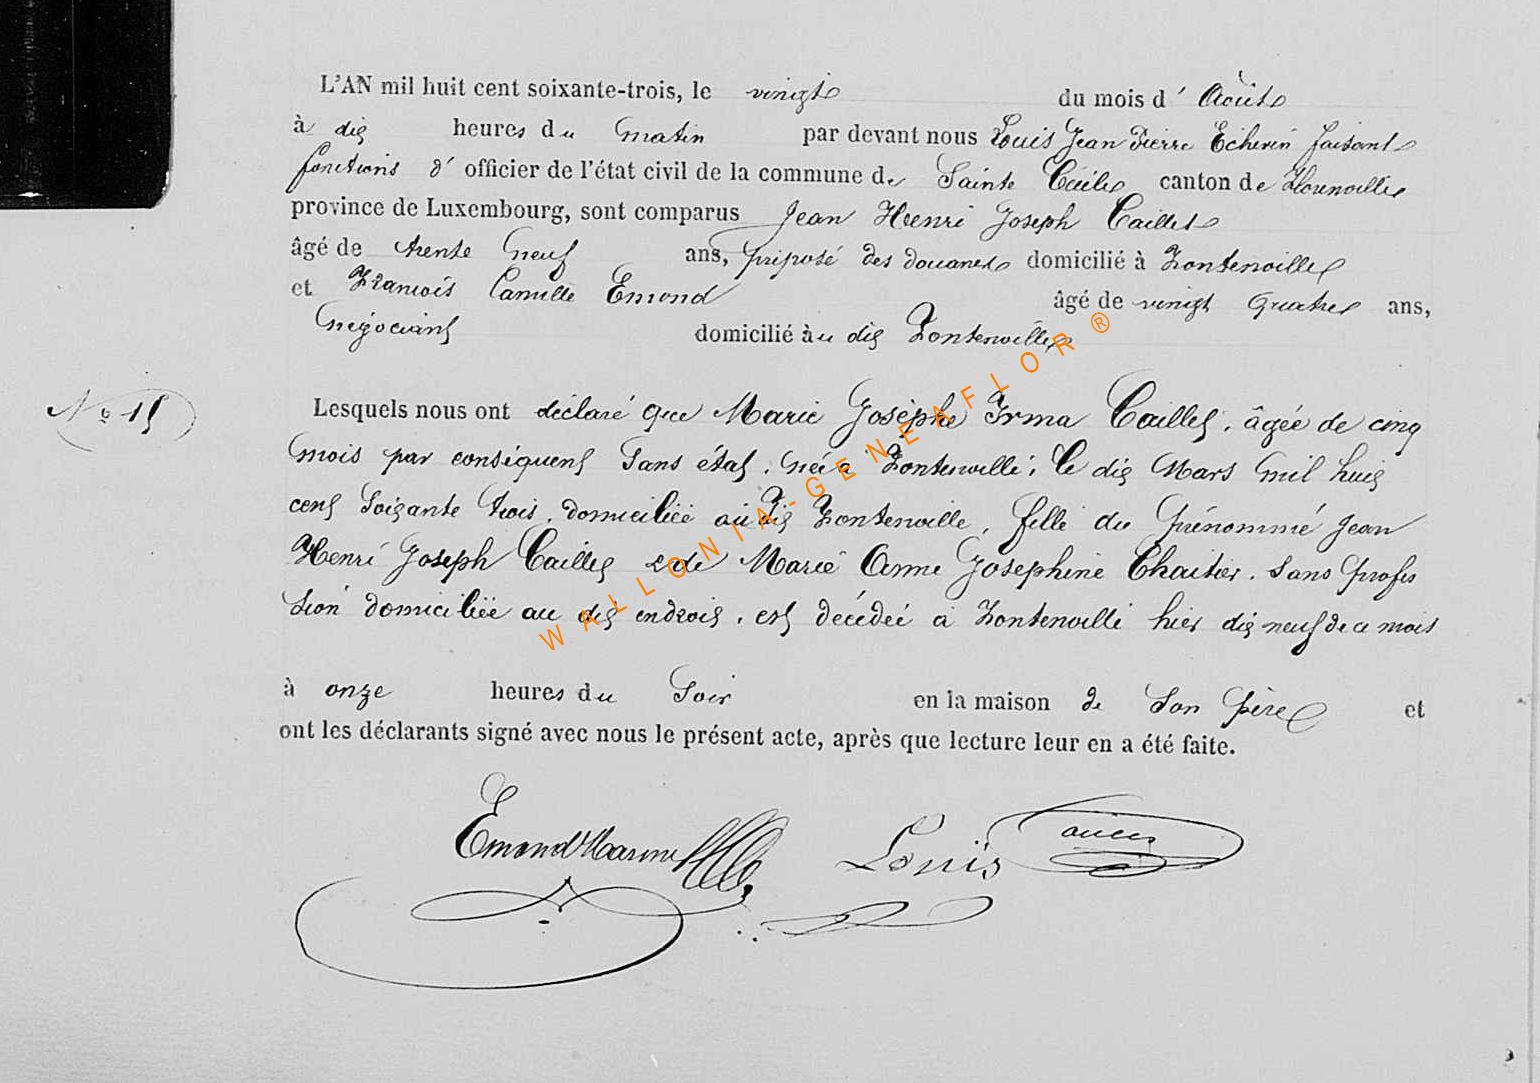 L'AN mil huit cent soixante-trois, le vingt du mois d' Août
à dix heures du matin par devant nous Louis Jean Pierre Echevin faisant
fonctions d' officier de l'état civil de la commune de Sainte Cécile canton de Florenville
province de Luxembourg, sont comparus Jean Henri Joseph Caillet
âgé de trente neuf ans, préposé des douanes domicilié à Fontenoille
et Francois Camille Emond âgé de vingt quatre ans,
négociant domicilié àu dit Fontenoille
N° 15
Lesquels nous ont déclaré que Marie Josèphe Irma Caillet, âgée de cinq
mois par conséquent sans état, née à Fontenoille, le dix Mars mil huit
cent soixante trois, domiciliée au dit Fontenoille, fille du prénommé Jean
Henri Joseph Caillet & de Marie Anne Josephine Chaitier, sans profes
sion domiciliée au dit endroit, est décédée à Fontenoille hier dix neuf de ce mois
à onze heures du soir en la maison de son père et
ont les déclarants signé avec nous le présent acte, après que lecture leur en a été faite.
Emond Louis
WALLONIA-GENEAFLOR®